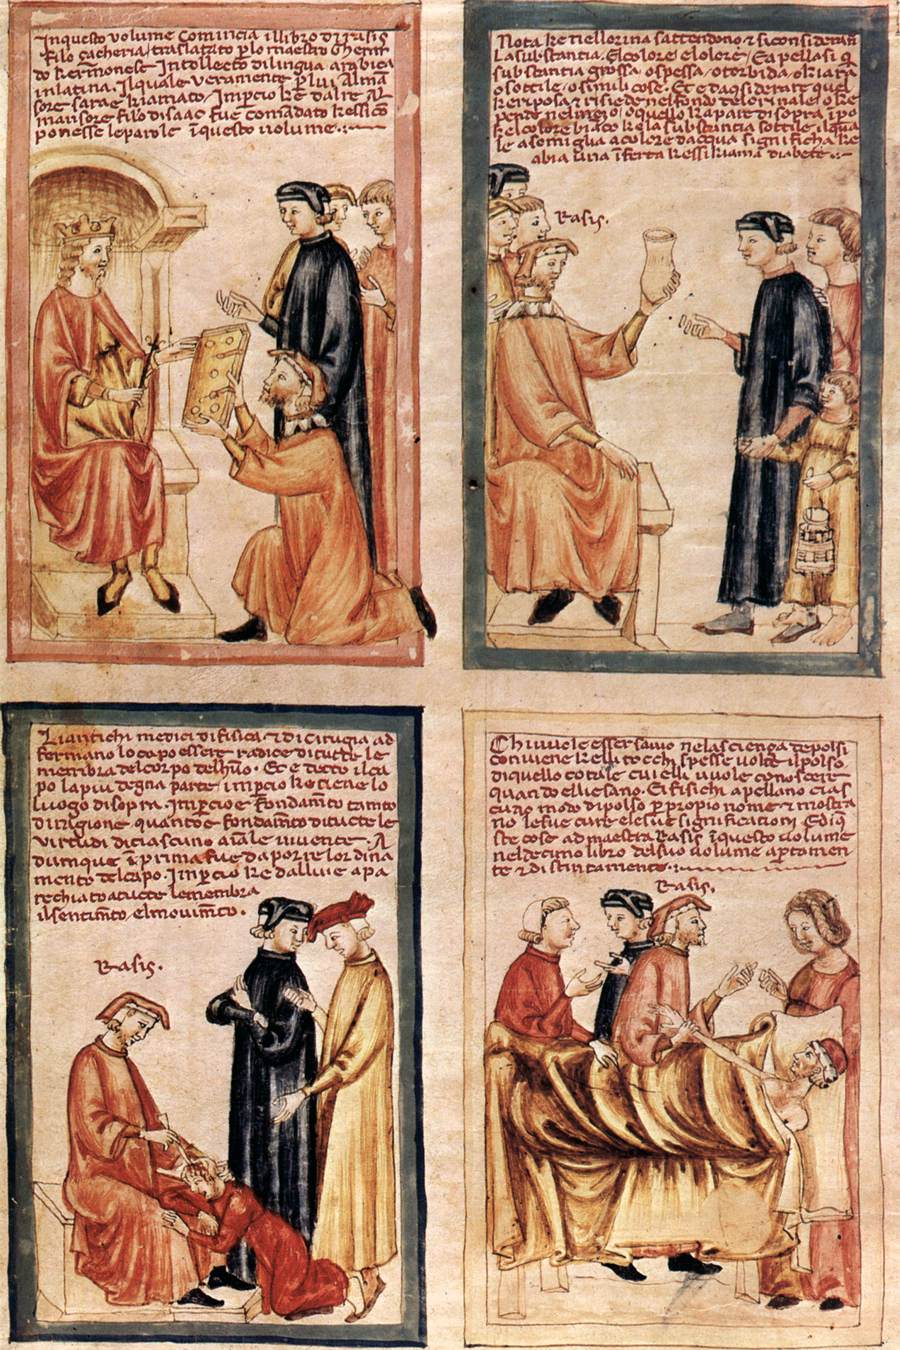 Inquesto volume comincia illibro di rasis
filo çacheria traslatato p lo maestro Gherar
do kermonese Intellecto di lingua arabica
in latina. Ilquale veramente p lui Alman
sore sarae kiamato Impcio ke dalre Al
mansore filo disaac fue comādato kessico
ponesse le parole ī questo volume
Nota ke nellorina sattendono & si considerā
La substantia. El colore el olore. Ea pellasi q̄
substantia grossa / o spessa / o torbida o kiara
o sottile / o simili cose. Et e da q̄siderare quel
ke riposa & risiede nel fondo del orinale / o ke
pende nel meço / o quello ke apare di sopra
ke l colore biāco ke la substantia sottile ilqua
le a somiglia a colore dacqua significha ke
abia una īferta kessi kiama diabete
Rasis.
Li antichi medici di fisica & di cirugia ad
fermano lo capo essere radice di tutte le
membra del corpo delhūo. Et e decto il ca
po la piu degna parte imp̄cio ke tiene lo
luogo di sopra. Imp̄cio e fondam̄to tanto
di ragione quanto e fondam̄to di tucte le
virtudi di ciascuno aīale vivente. A
dumque ī prima fue da porre lor dina
mento del capo. Imp̄cio ke dallui e apa
rechiato a tucte le membra
il sentim̄to el movim̄to.
Rasis.
Chi vuole esser savio nela sciença de polsi
conviene kelli tocchi spesse volte il polso
di quello cotale cui elli vuole conoscere
quando elli e sano. Ei fisichi apellano cias
cuno modo di polso p propio nome & mostra
no le sue cure ele sue significationi. Ed iq̄
ste cose ad maestra Rasis ī questo volume
nel decimo libro del suo volume aptamen
te & distintamente
Rasis.